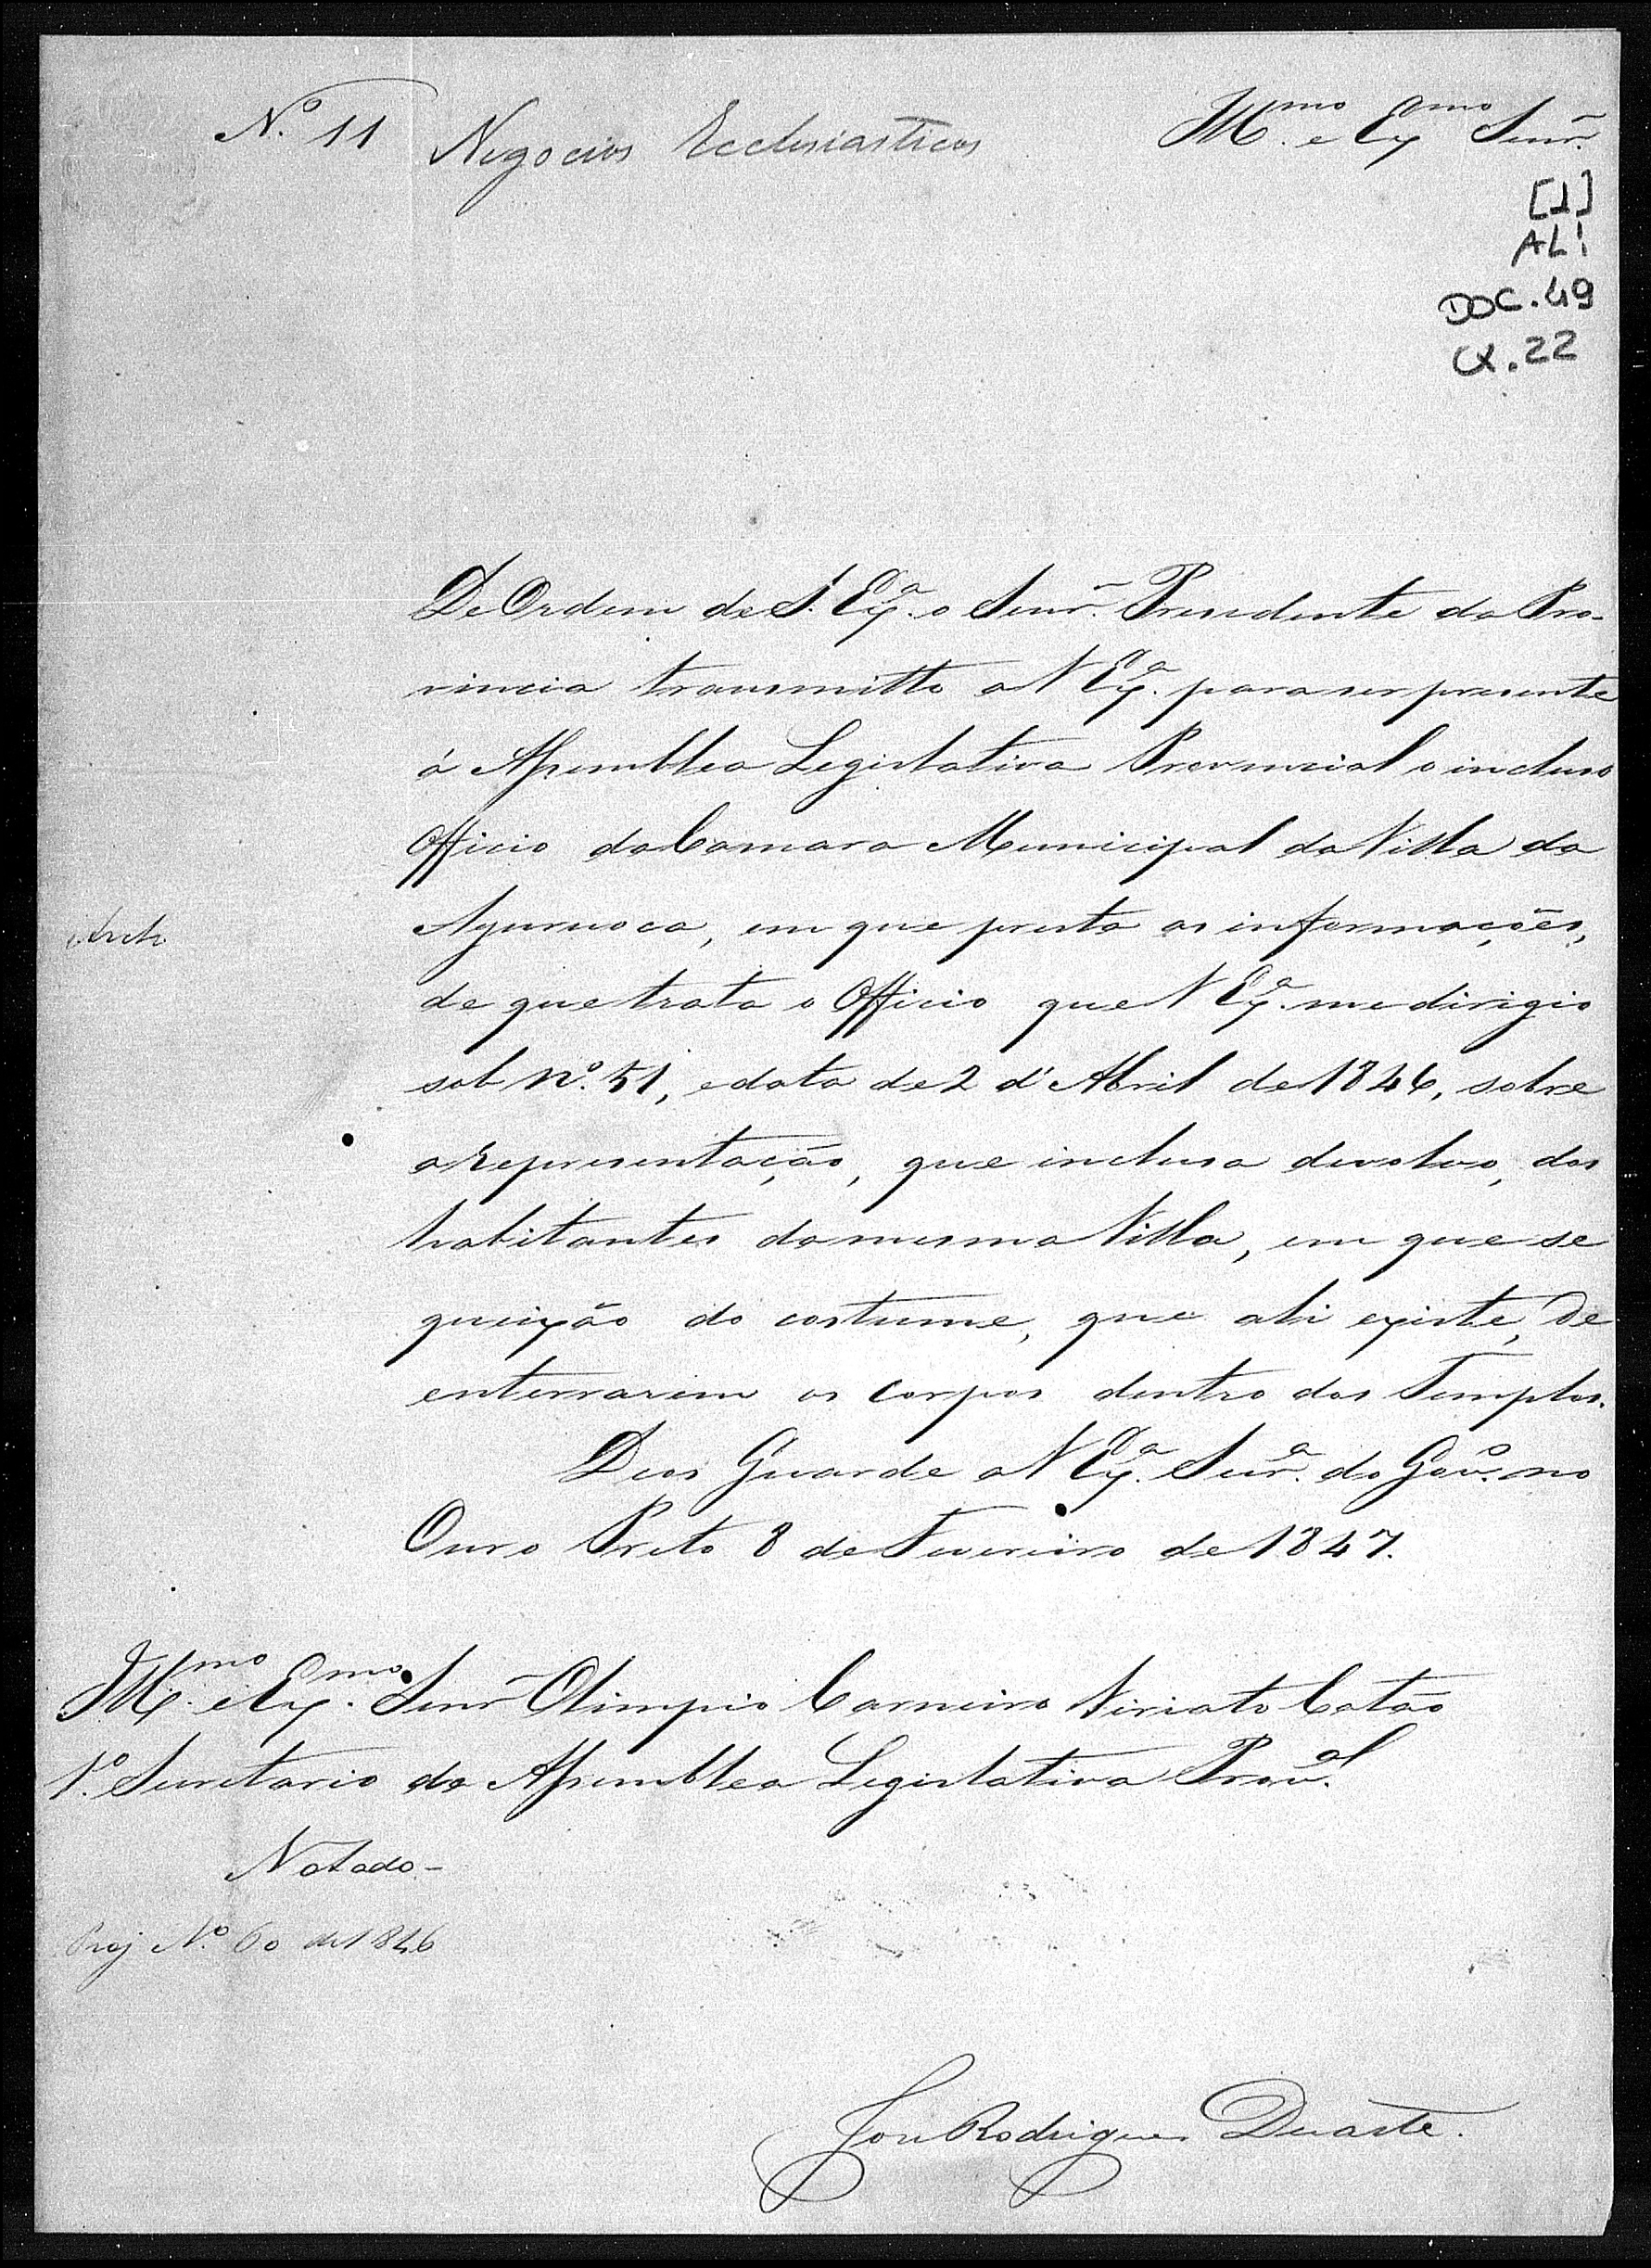 Nº 11 Negocios Ecclesiasticos Illmo. e Exmo. Senr.
[1]
AL!
DOC. 49
CX. 22
De Ordem de S. Exª. o Senr. Presidente da Pro-
vincia transmitto a V Exª. para ser presente
á Assemblea Legislativa Provincial o incluso
Officio da Camara Municipal da Villa da
Ayuruoca, em que presta as informações,
Arch.
de que trata o Officio que V Exª. me dirigio
sob nº. 51, e data de 2 d'Abril de 1846, sobre
a representação, que inclusa devolvo, dos
habitantes da mesma Villa, em que se
queixão do costume, que ali existe, de
enterrarem os corpos dentro dos Templos.
Deos Guarde a V Exª. Secrª. do Govº. no
Ouro Preto 8 de Fevereiro de 1847.
Illmo. e Exmo. Senr Olimpio Carneiro Viriato Catão
1º. Secretario da Assemblea Legislativa Proval.
Notado-
Proj Nº. 60 de 1846
José Rodrigues Duarte.